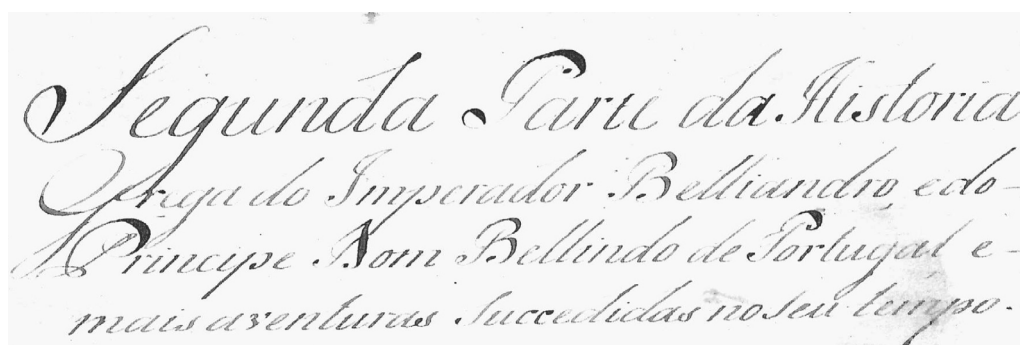 Segunda Parte da Historia
Grega do Imperador Belliandro, e do-
Principe Dom Bellindo de Portugal e-
mais aventuras succedidas no seu tempo.